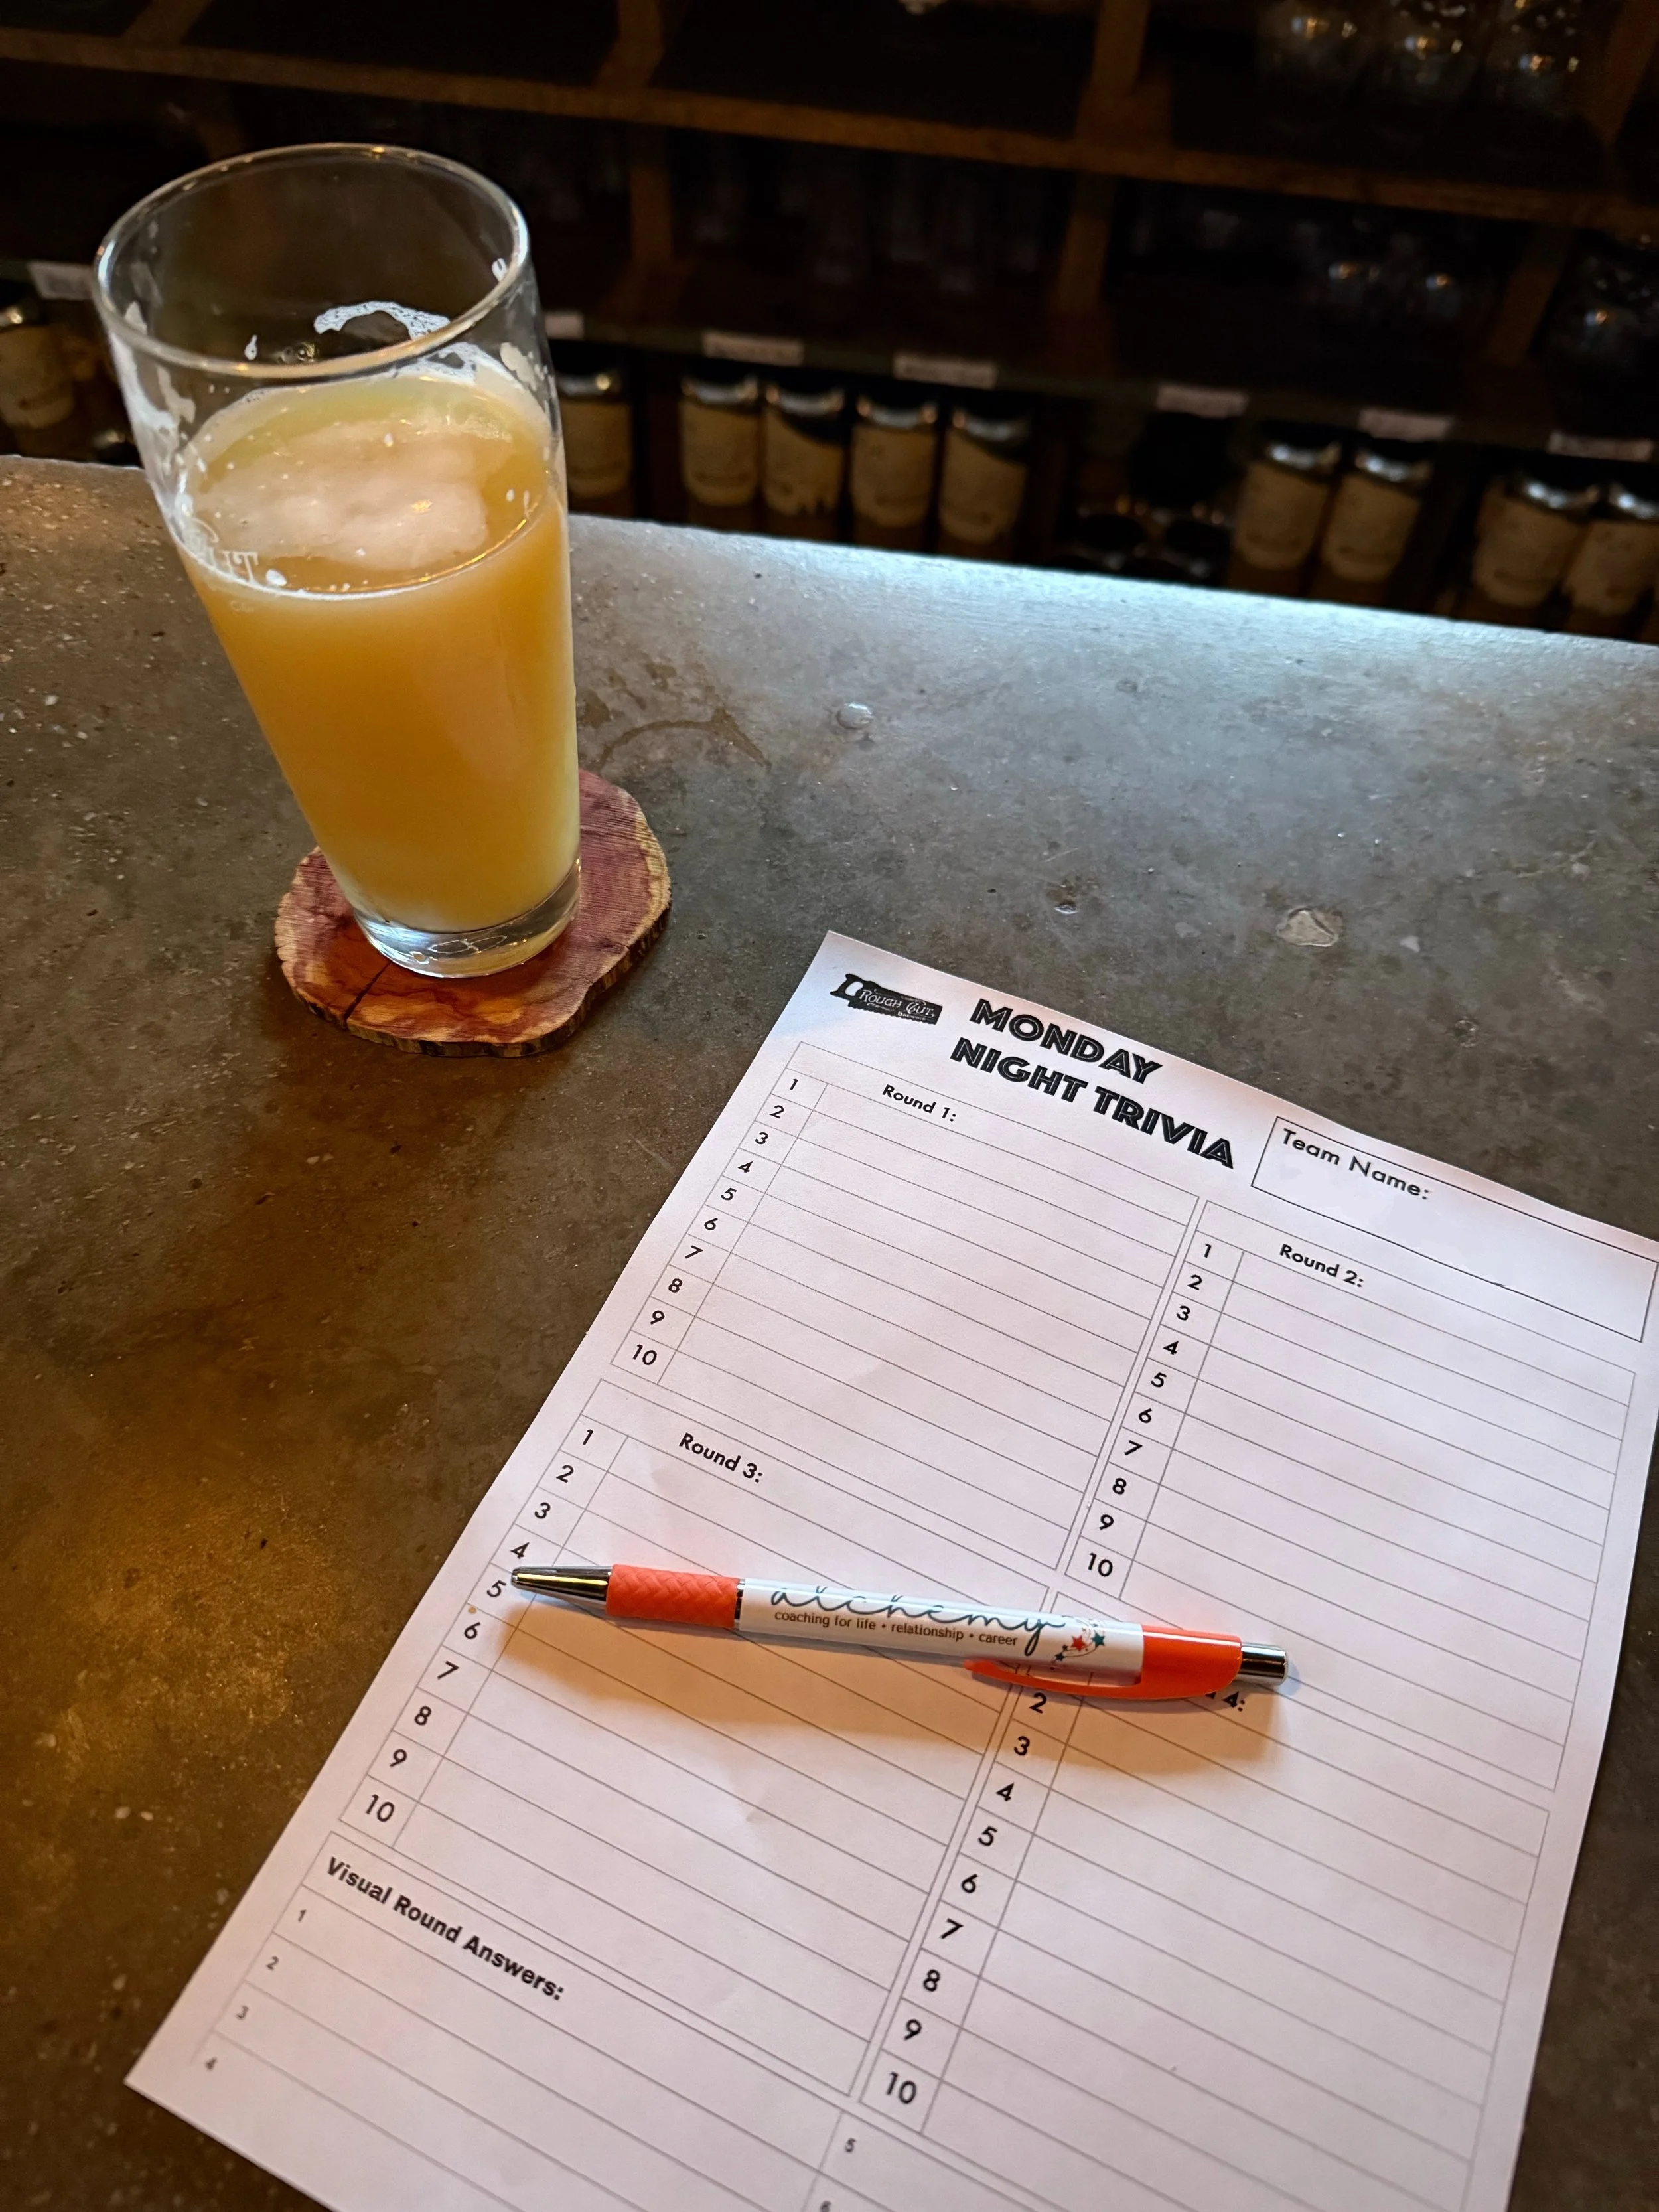 ROUGH CUT
MONDAY
NIGHT TRIVIA
Team Name:
Round 1:
1
2
3
4
5
6
7
8
9
10
Round 2:
1
2
3
4
5
6
7
8
9
10
Round 3:
1
2
3
4
5
6
7
8
9
10
alchemy
coaching for life • relationship • career
4:
2
3
4
5
6
7
8
9
10
Visual Round Answers:
1
2
3
4
5
6